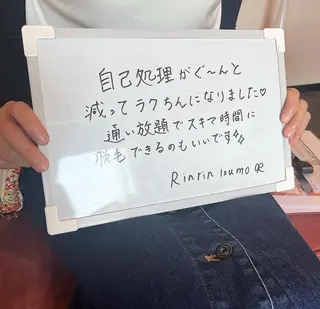 自己処理がぐ〜んと
減ってラクちんになりました♡
通い放題でスキマ時間に
脱毛できるのもいいです✨
Rinrin Izumo 店